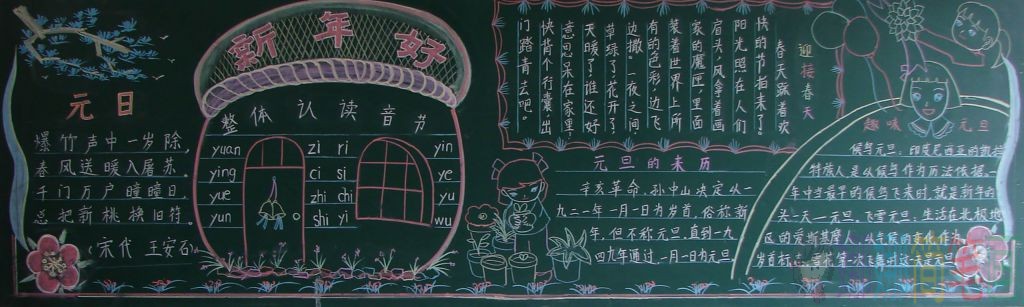 元日
爆竹声中一岁除，
春风送暖入屠苏。
千门万户曈曈日，
总把新桃换旧符。
（宋代 王安石）
新年好
整体认读音节
yuan zi ri yin
ying ci si ye
yue zhi chi yu
yun shi yi wu
迎接春天
春天踩着欢
快的节拍来了！
阳光照在人们
肩头，风拿着画
家的魔匣，里面
装着世界上所
有的色彩，边飞
边撒。一夜之间，
草绿了，花开了，
天暖了，谁还好
意思呆在家里？
快背个行囊，出
门踏青去吧。
元旦的来历
辛亥革命，孙中山决定从一
九二一年一月一日为岁首，俗称新
年，但不称元旦，直到一九
四九年通过，一月一日为元旦。
趣味元旦
候鸟元旦：印度尼西亚的
特族人是以候鸟作为历法依据，一
年中当最早的候鸟飞来时，就是新年的
头一天—元旦。飞雪元旦：生活在北极地
区的爱斯基摩人，以气候的变化作为
岁首标 第一次飞舞时这天是元旦